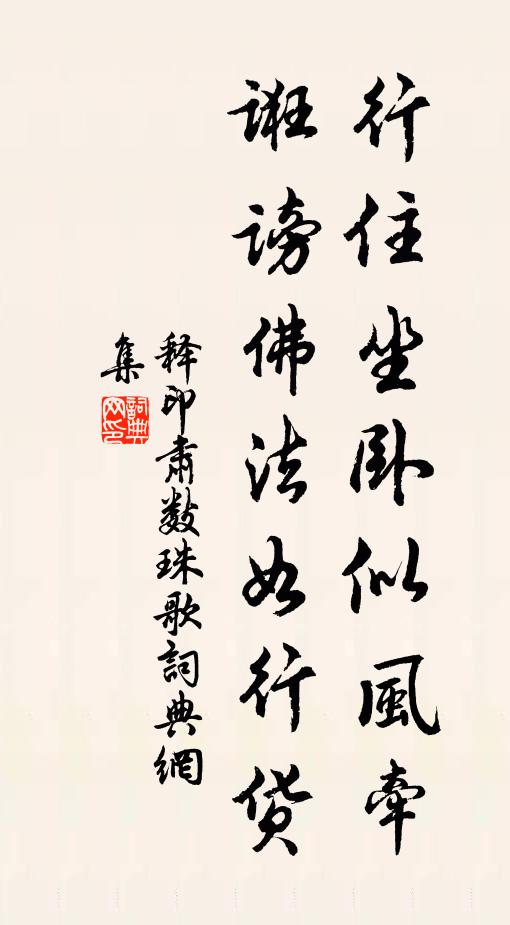 行住坐卧似風牽
誑謗佛法如行貨
释印肃數珠歌詞典網
集
詞典網印